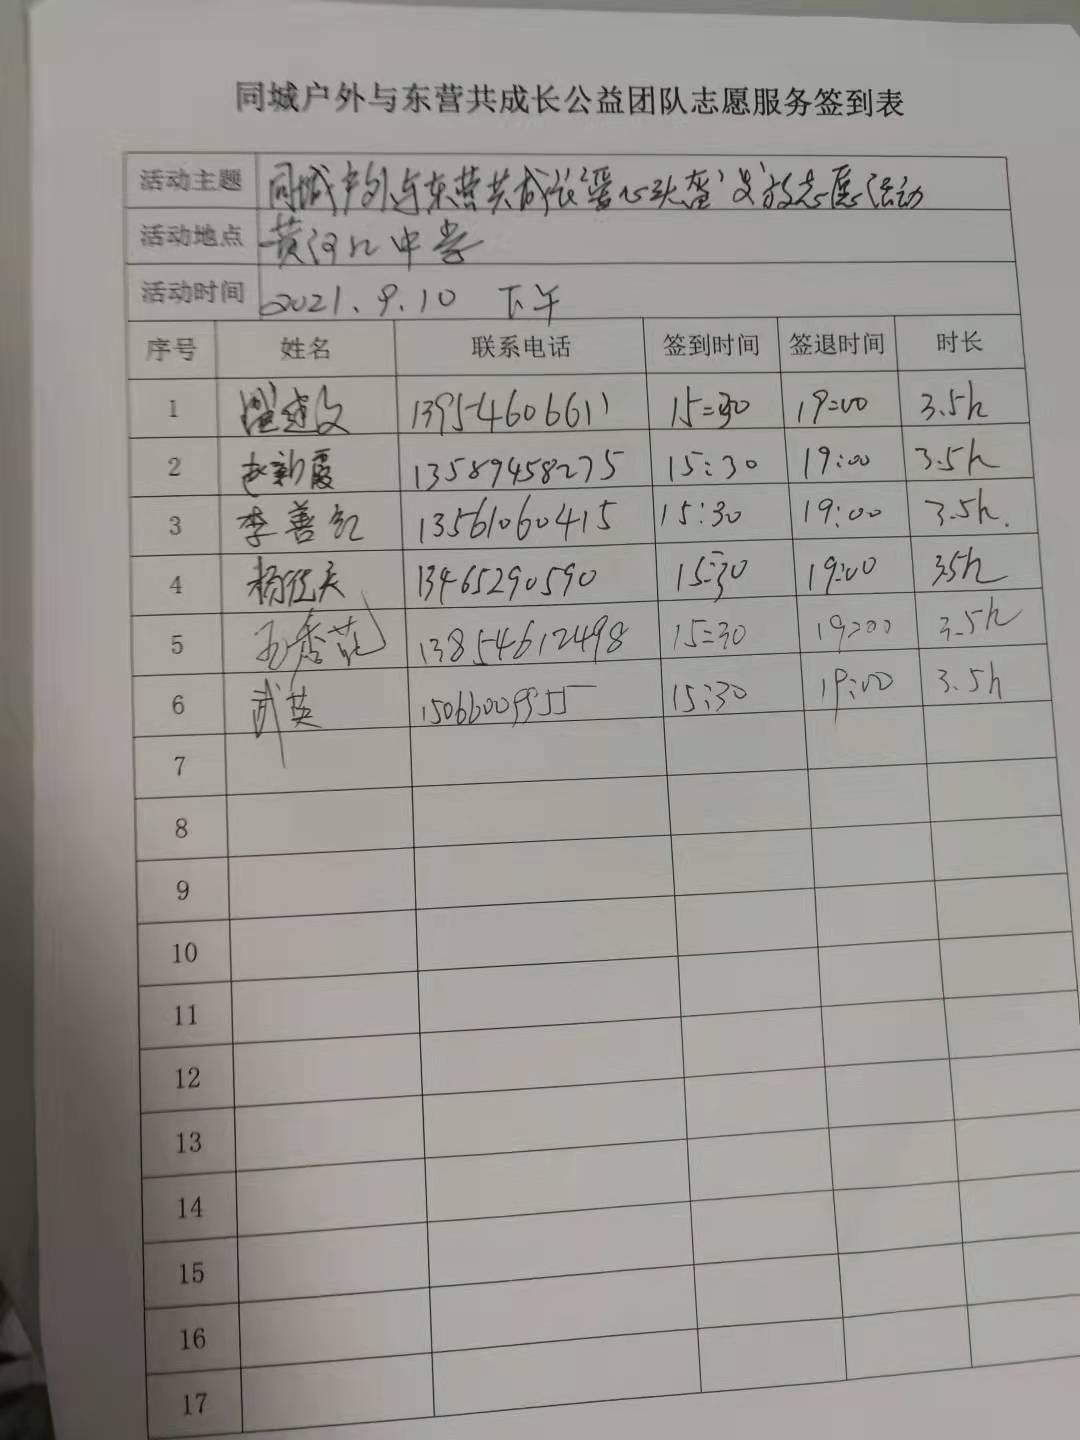 同城户外与东营共成长公益团队志愿服务签到表
活动主题 同城户外与东营共成长“爱心头盔”发放志愿活动
活动地点 黄河口中学
活动时间 2021.9.10 下午
序号 姓名 联系电话 签到时间 签退时间 时长
1 建文 13954606611 15:30 19:00 3.5h
2 赵新霞 13589458275 15:30 19:00 3.5h
3 李善红 13561060415 15:30 19:00 3.5h.
4 杨 13465290590 15:30 19:00 3.5h
5 秀花 13854612498 15:30 19:00 3.5h
6 武英 15066009955 15:30 19:00 3.5h
7
8
9
10
11
12
13
14
15
16
17